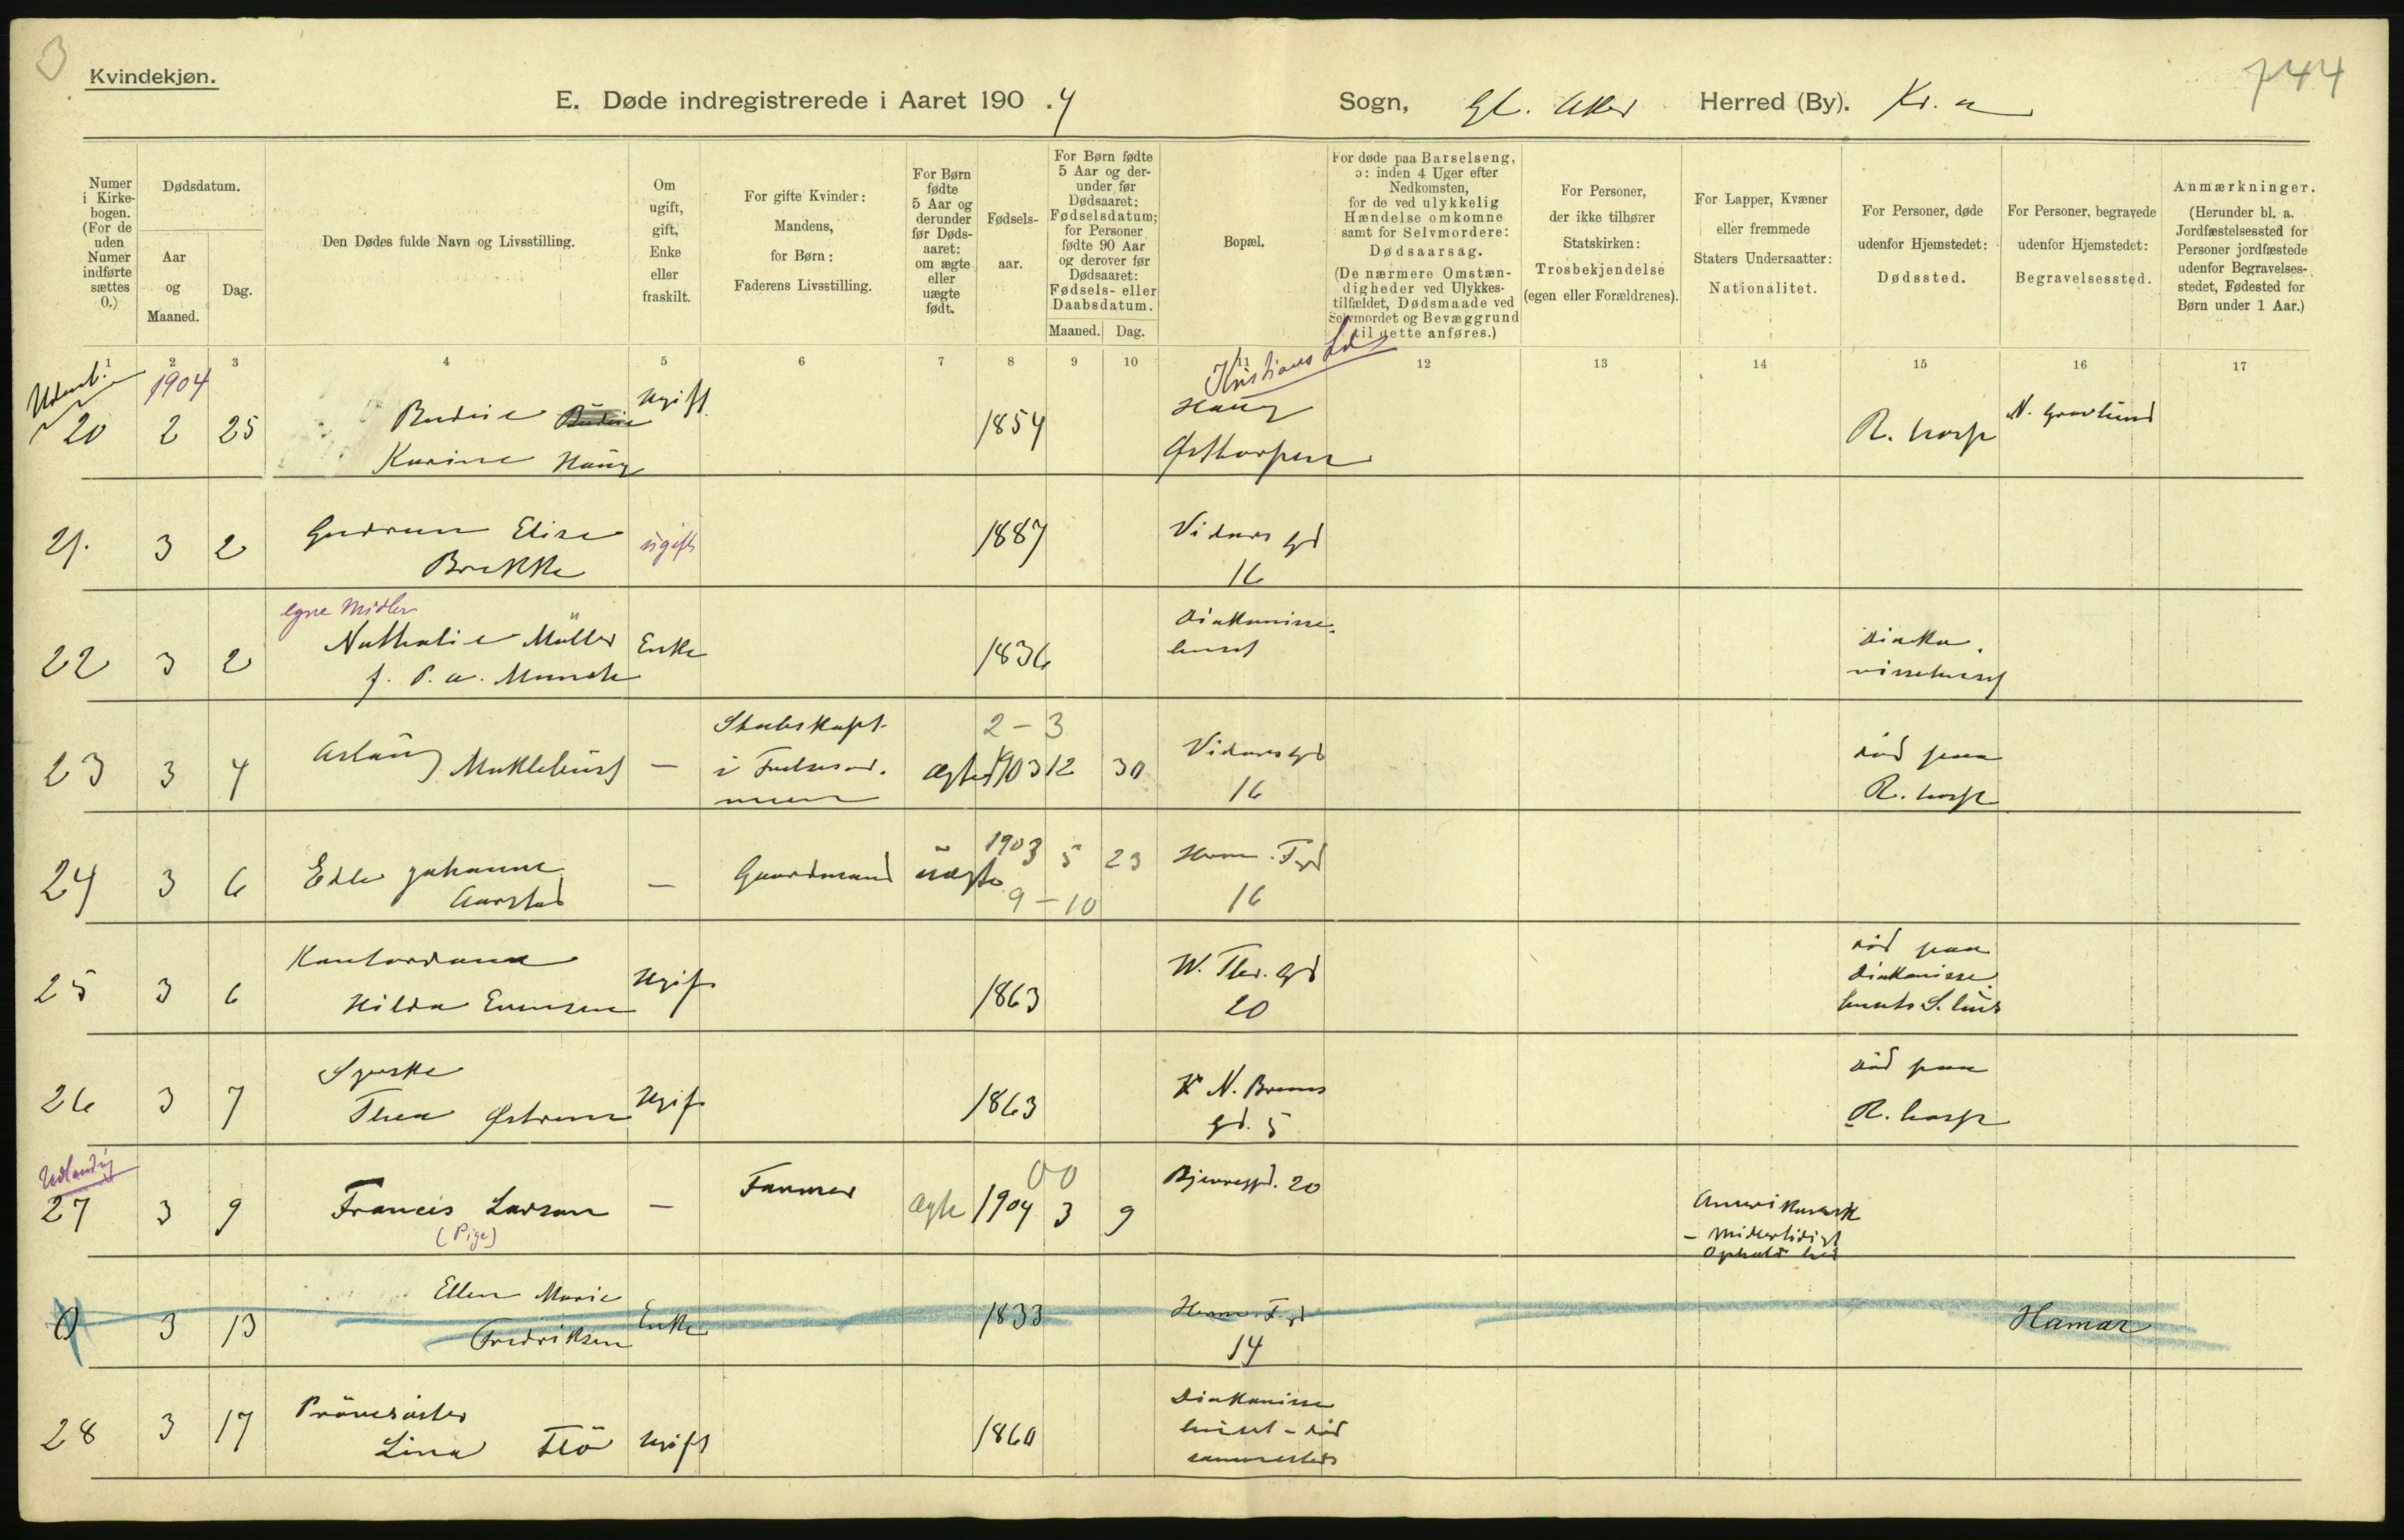 3
Kvindekjøn.
744
E. Døde indregistrerede i Aaret 190.4 Sogn, Gl. Aker Herred (By). Kr. a
Numer i Kirkebogen. (For de uden Numer indførte sættes 0.)
Dødsdatum.
Aar og Maaned.
Dag.
Den Dødes fulde Navn og Livsstilling.
Om ugift, gift, Enke eller fraskilt.
For gifte Kvinder: Mandens, for Børn: Faderens Livsstilling.
For Børn fødte 5 Aar og derunder før Dødsaaret: om ægte eller uægte født.
Fødselsaar.
For Børn fødte 5 Aar og derunder før Dødsaaret: Fødselsdatum; for Personer fødte 90 Aar og derover før Dødsaaret: Fødsels- eller Daabsdatum.
Maaned. Dag.
Bopæl.
For døde paa Barselseng, ɔ: inden 4 Uger efter Nedkomsten, for de ved ulykkelig Hændelse omkomne samt for Selvmordere: Dødsaarsag. (De nærmere Omstændigheder ved Ulykkestilfældet, Dødsmaade ved Selvmordet og Bevæggrund til dette anføres.)
For Personer, der ikke tilhører Statskirken: Trosbekjendelse (egen eller Forældrenes).
For Lapper, Kvæner eller fremmede Staters Undersaatter: Nationalitet.
For Personer, døde udenfor Hjemstedet: Dødssted.
For Personer, begravede udenfor Hjemstedet: Begravelsessted.
Anmærkninger. (Herunder bl. a. Jordfæstelsessted for Personer jordfæstede udenfor Begravelsesstedet, Fødested for Børn under 1 Aar.)
1 2 3 4 5 6 7 8 9 10 11 12 13 14 15 16 17
Udenb. 1904 Kristians
20 2 25 Karine Haug Ugift 1854 Haug R. hosp N. Gravlund
21. 3 2 Gudrun Elise Brekke ugift 1887 Vidars gd 16
egne Midler
22 3 2 Nathalie Müller f. P. a. Munch Enke 1836 Diakonissehuset Diakonissehuset
23 3 4 Aslaug Myklebust — Stabskapt. i ægte 1903 12 30 2 – 3 Vidars gd 16 død paa R. hosp
24 3 6 Edle Johanne Aarstad — Gaardmand uægte 1903 5 23 9 – 10 Herm. F. gd 16
25 3 6 Kontordame Hilda Evensen Ugift 1863 W. Thr. gd 20 død paa Diakonissehusets S. hus
26 3 7 Syerske Thea Østrem Ugift 1863 N. Bruns gd. 5 død paa R. hosp
Udlandet
27 3 9 Francis Larson (Pige) — Farmer ægte 1904 3 9 00 Bjerregd. 20 Amerikansk – Midlertidigt Ophold her
0 3 13 Ellen Marie Fredriksen Enke 1833 Herm. F. gd 14 Hamar
28 3 17 Prøvesøster Lina Flö Ugift 1860 Diakonissehuset – død sammesteds